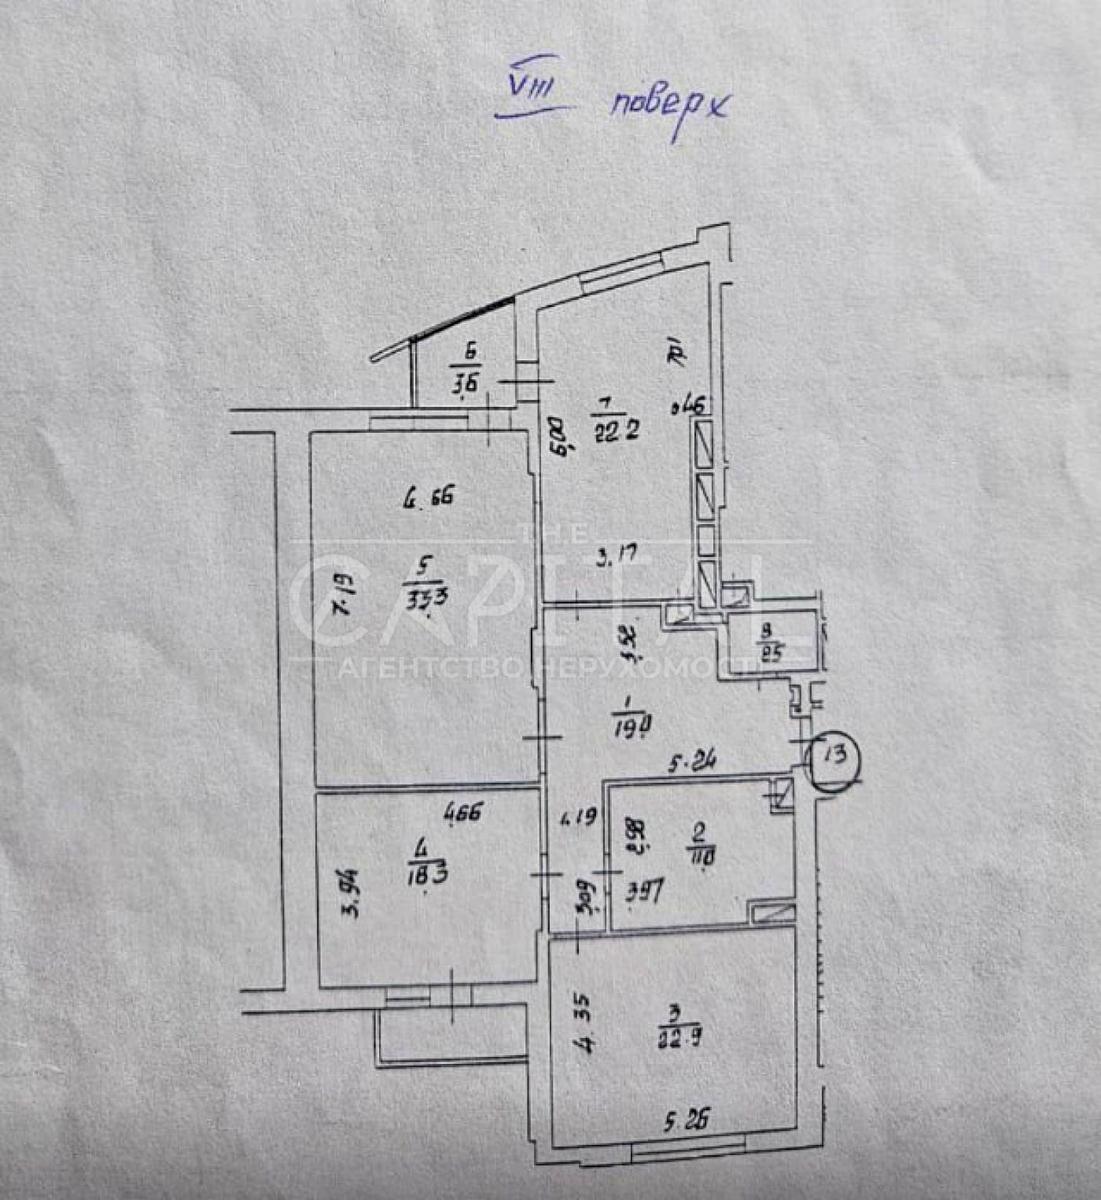 VIII поверх
6
3.6
7
22.2
0.46
5.00
4.66
3.17
5
33.3
7.19
THE
CAPITAL
АГЕНТСТВО НЕРУХОМОСТІ
3.52
8
2.5
1
19.0
5.24
13
4.66
1.19
2.98
2
11.0
4
18.3
3.94
3.09
3.97
4.35
3
22.9
5.26